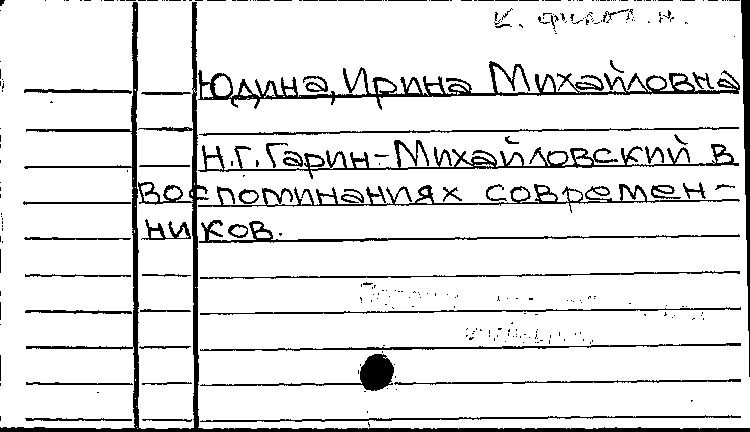 к. филол. н.
Юдина, Ирина Михайловна
Н.Г. Гарин-Михайловский в
воспоминаниях современ-
ников.